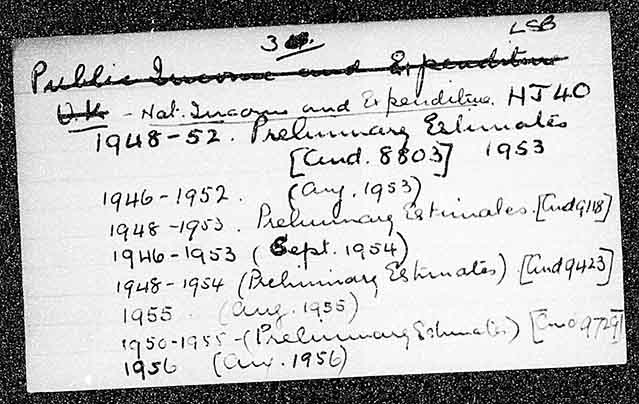 3 LSB
Public Income and Expenditure
U.K. - Nat. Income and Expenditure. HJ40
1948-52. Preliminary Estimates
[Cmd. 8803] 1953
1946-1952. (Aug. 1953)
1948-1953. Preliminary Estimates. [Cmd 9118]
1946-1953 (Sept. 1954)
1948-1954 (Preliminary Estimates). [Cmd 9423]
1955 (Aug. 1955)
1950-1955-(Preliminary Estimates) [Cmd 9729]
1956 (Aug. 1956)